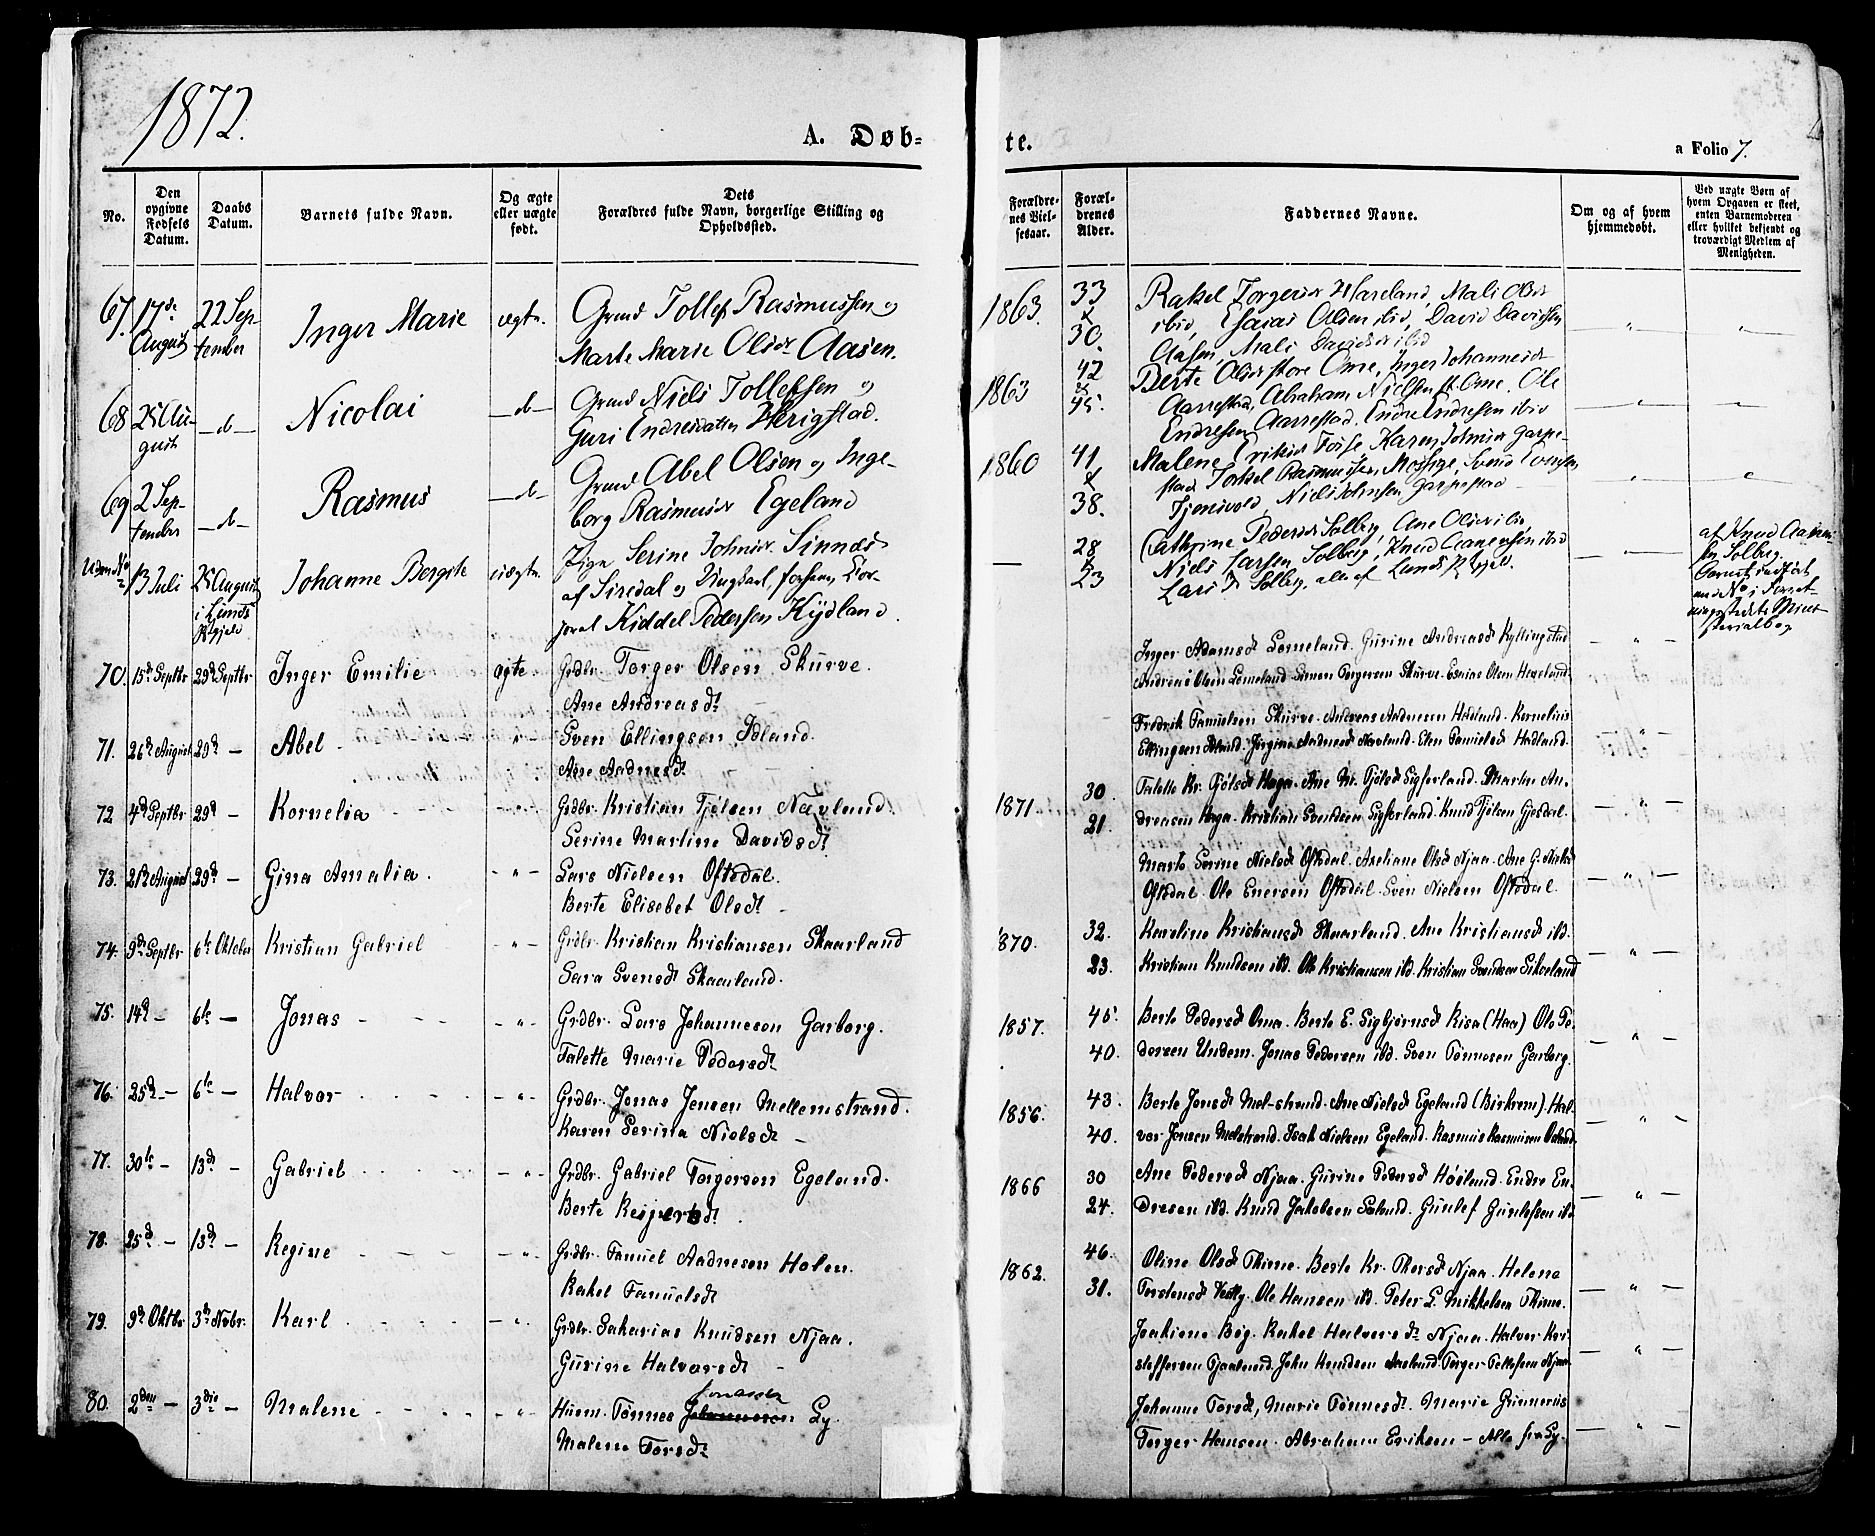 1872.
A. Døb-
te.
a Folio 7.
No.
Den opgivne Fødsels Datum.
Daabs Datum.
Barnets fulde Navn.
Og ægte eller uægte født.
Dets Forældres fulde Navn, borgerlige Stilling og Opholdssted.
Forældrenes Vielsesaar.
Forældrenes Alder.
Faddernes Navne.
Om og af hvem hjemmedøbt.
Ved uægte Børn af hvem Opgaven er skeet, enten Barnemoderen eller hvilket bekjendt og troværdigt Medlem af Menigheden.
67. 17de August 22 September Inger Marie ægte.
Grmd Tollef Rasmussen og
Marte Marie Olsdr Aasen.
1863. 33 & 30.
Rakel Torgersdr Hareland, Mali Olsdr
ibid, Esaias Olsen ibid, David Davidsen
Aasen, Mali Davidsdr ibid
68 25 August -d- Nicolai -d-
Grmd Niels Tollefsen og
Guri Endresdatter Herigstad.
1863 42 & 45.
Berte Olsdr store Ome, Inger Johannesdr
Aarrestad, Abraham Nielsen st. Ome. Ole
Endresen Aarrestad. Endre Endresen ibid
69 2 September -d- Rasmus -d-
Grmd Abel Olsen og Inge-
borg Rasmusdr Egeland
1860 41 & 38.
Malene Eriksdr Tosse, Karen Johnsdr Garpe-
stad Torkel Rasmussen Mossige, Svend
Niels Johnsen Garpestad
Uden No 13 Juli 25 August i Lunds Pgjeld Johanne Bergite uægte.
Pige Serine Johnsdr. Sinnes
af Siredal og Ungkarl,
Kiddel Pedersen Kydland.
— 28 & 23
Cathrine Pedersdr Solberg, Ane Olsdr ibid,
Niels Larsen Solberg, Knud Aanensen ibid
Lars Solberg, alle af Lunds Pgjeld.
af Knud Aanen-
sen Solberg.
Barnet indført
med No i
Mini-
sterialbog
70. 15de Septbr 29de Septbr Inger Emilie ægte
Grdbr. Torger Olsen Skurve.
Ane Andreasdt
Inger Adamsdt Lomeland. Gurine Andreasdt Kyllingstad
Andreas Olsen Lomeland. Simon Torgersen Skurve. Esaias Olsen Heveland.
71. 26de August 29de — Abel "
Sven Ellingsen Idland.
Ane Aadnesdt
Fredrik Tamielsen Skurve. Andreas Aadnesen Hadland. Kornelius
Ellingsen Idland. Jørgine Aadnesdt Navland. Elen Tamielsdt Hadland.
72 4de Septbr 29de — Kornelia "
Grdbr. Kristian Tjølsen Navland.
Serine Martine Davidsdt
1871 30. 21.
Talette Kr. Tjølsdt Haga. Ane M. Tjølsdt Sigferland. Martin An-
dreasen Haga. Kristian Svendsen Sigferland. Knud Tjølsen Gjesdal.
73. 21de August 29de — Gina Amalia. "
Lars Nielsen Oftedal.
Berte Elisebet Olsdt
Marte Serine Nielsdt Oftedal. Axeliane Olsdt Njaa. Ane G. Nielsdt
Oftedal. Ole Enersen Oftedal. Sven Nielsen Oftedal.
74. 9de Septbr 6te Oktober Kristian Gabriel "
Grdbr. Kristian Kristiansen Skaarland
Sara Svensdt Skaarland.
1870. 32. 23.
Karoline Kristiansdt Skaarland. Ane Kristiansdt ibd.
Kristian Knudsen ibd. Ole Kristiansen ibd. Kristian Svendsen Sikveland
75. 14de — 6te — Jonas "
Grdbr. Lars Johannesen Garborg.
Talette Marie Pedersdt
1857. 45. 40.
Berte Pedersdt Oma. Berte E. Sigbjørnsdt Risa (Haa) Ole Pe-
dersen Undem. Jonas Pedersen ibd. Sven Tønnesen Garborg.
76. 25de — 6te — Halvor "
Grdbr. Jonas Jensen Mellemstrand.
Karen Serina Nielsdt
1856. 43. 40.
Berte Jonsdt Mel-strand. Ane Nielsdt Egeland (Birkrem). Hal-
vor Jonsen Melstrand. Isak Nielsen Egeland. Rasmus Rasmusen
77. 30te — 13de — Gabriel "
Grdbr. Gabriel Torgersen Egeland.
Berte Reijersdt.
1866 30 24.
Ane Pedersdt Njaa. Gurine Pedersdt Høiland. Endre En-
dresen ibd. Knud Jakobsen Søland. Gunlef Gunlefsen ibd.
78. 25de — 13de — Regine "
Grdbr. Tamuel Aadnesen Holen.
Rakel Tamuelsdt
1862. 46. 31.
Oline Olsdt Thime. Berte Kr. Thorsdt Njaa. Helene
Torstensdt Vestly. Ole Hansen ibd. Peter L. Mikkelsen Thime.
79. 9de Oktbr 3de Novbr. Karl "
Grdbr. Sakarias Knudsen Njaa.
Gurine Halvorsdt
Joakime Bøg. Rakel Halvorsdt Njaa. Halvor Kri-
stoffersen Tjaaland. John Knudsen Aasland. Torger Tollefsen Njaa
80. 2den — 3die — Malene "
Jonassen
Huusm. Tønnes Johannesen Ly.
Malene Torsdt
Johanne Torsdt, Marie Tønnesdt. Marie Grimerus
Torger Hansen. Abraham Eriksen – Alle fra Ly.